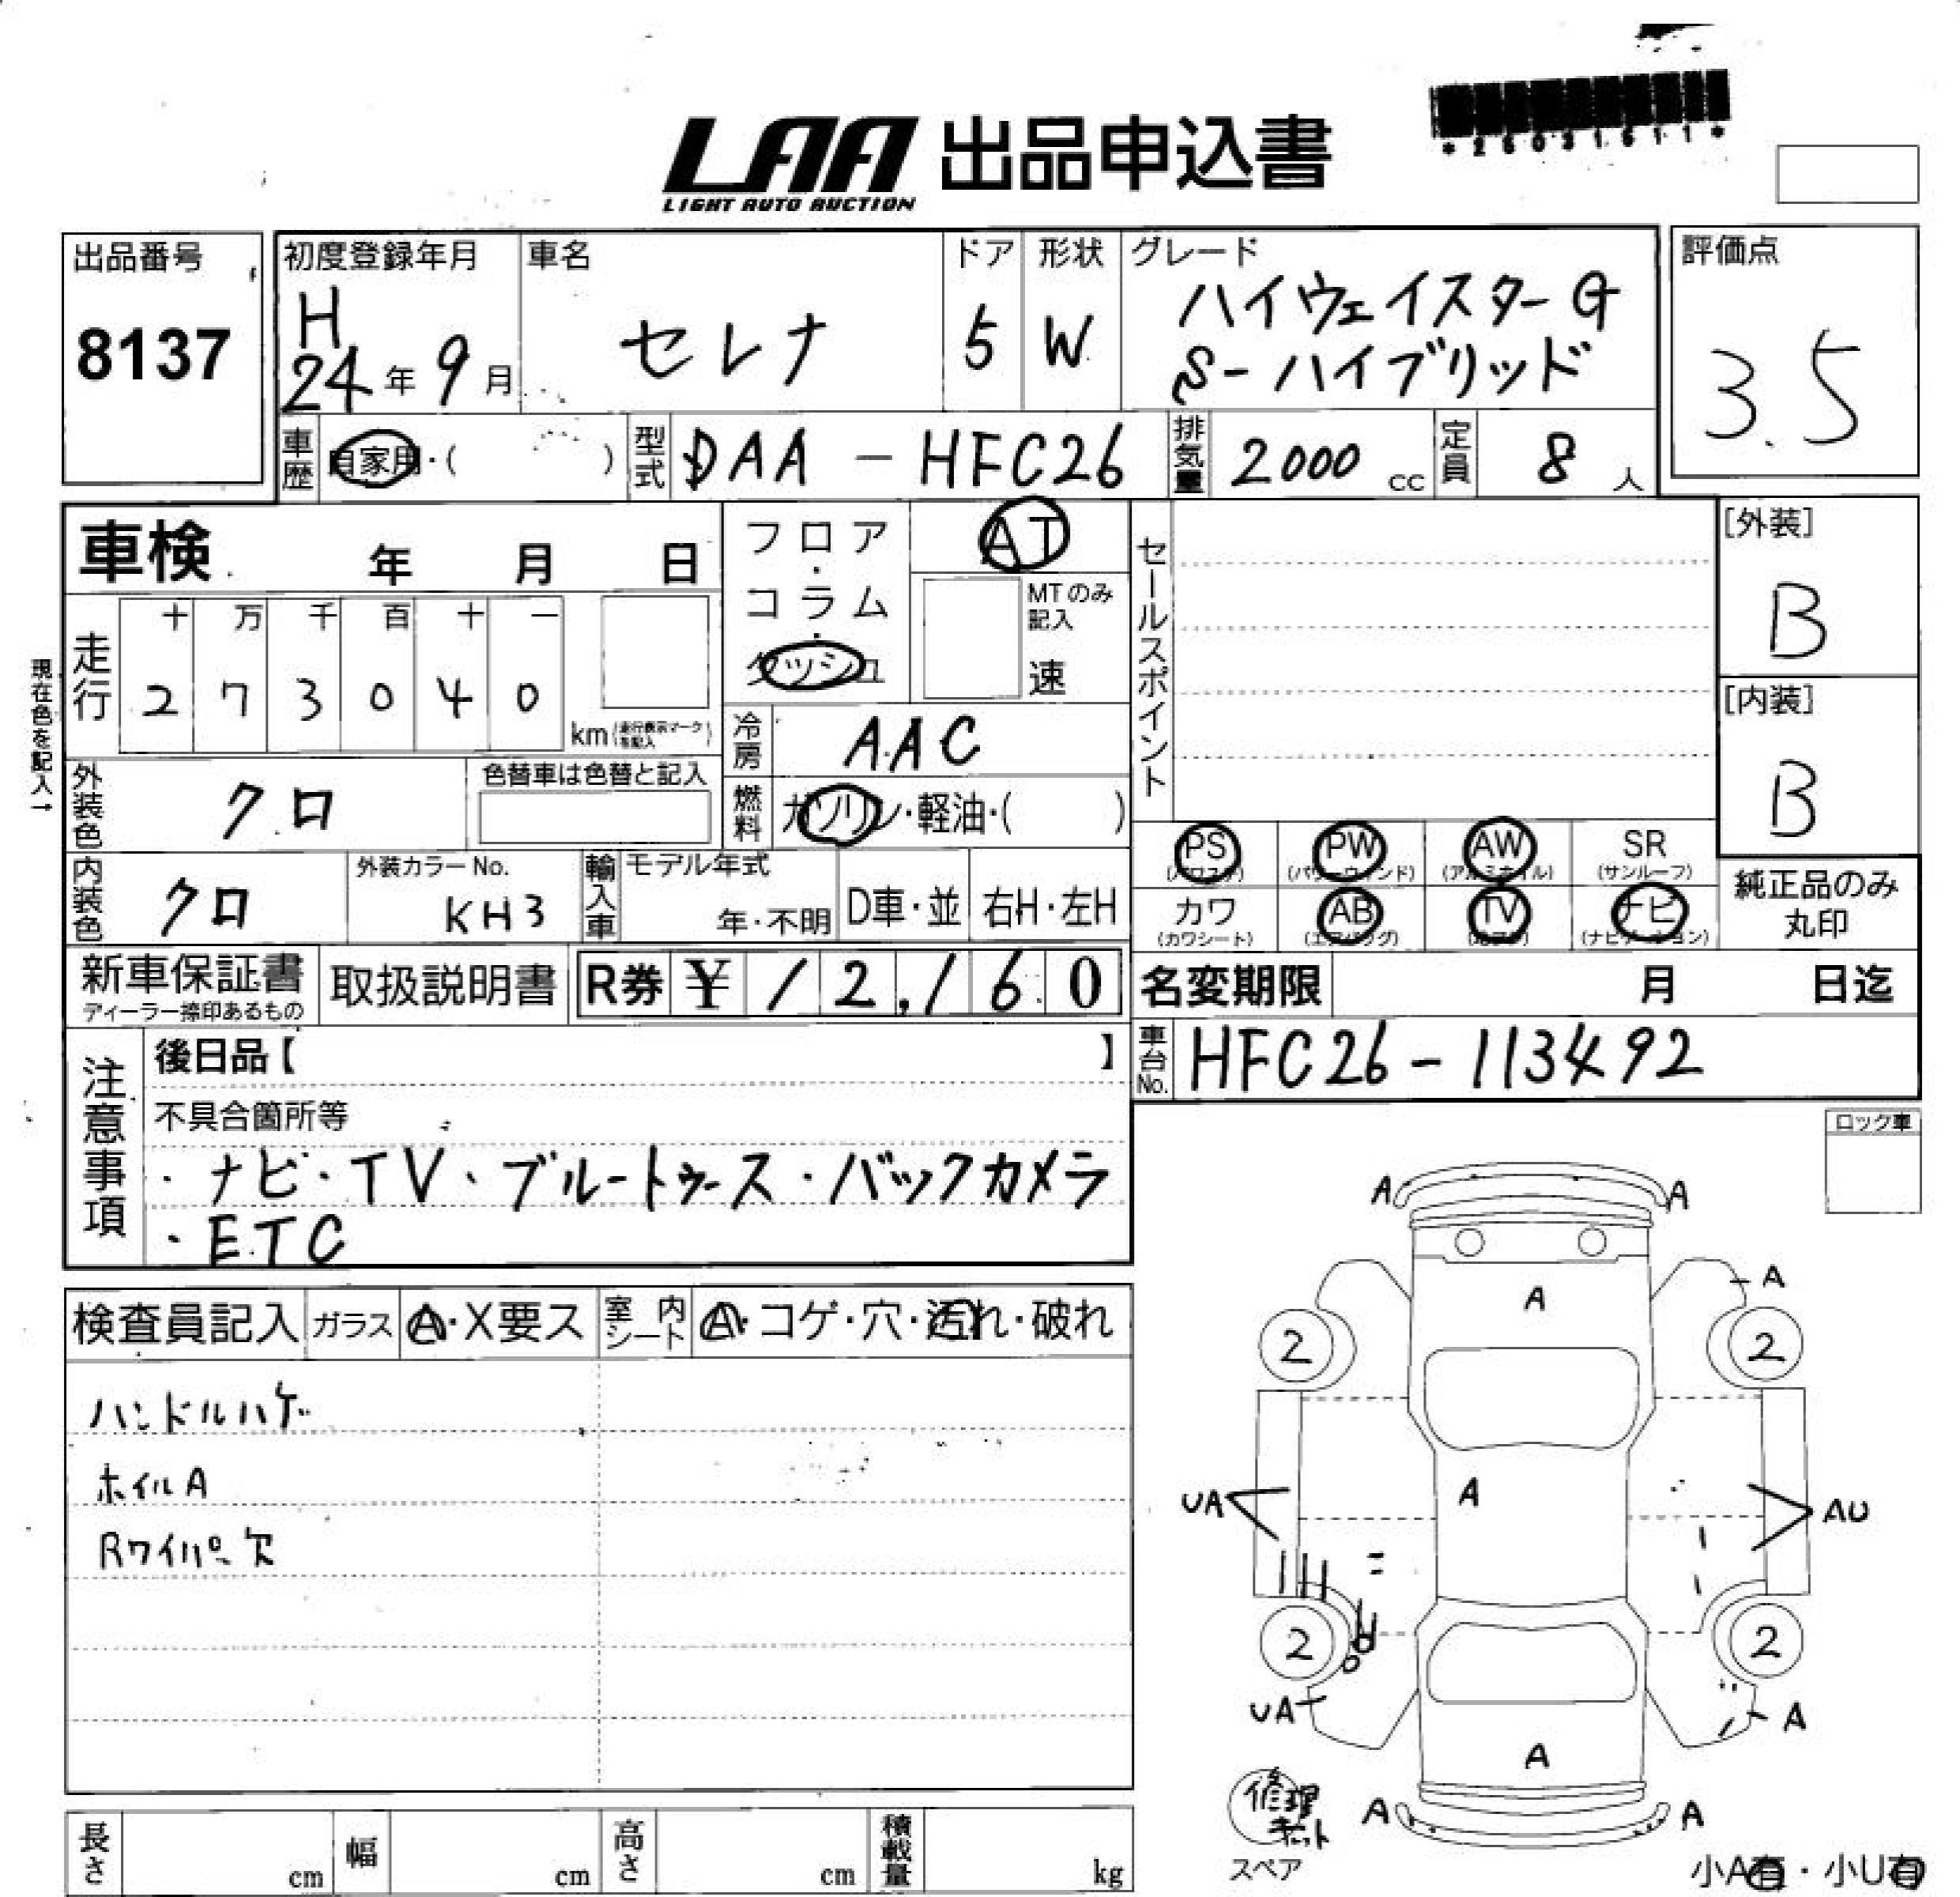 *26031511*
LAA 出品申込書
LIGHT AUTO AUCTION
出品番号
8137
初度登録年月
H
24年 9月
車名
セレナ
ドア
5
形状
W
グレード
ハイウェイスターG
S-ハイブリッド
評価点
3.5
車歴 自家用・( )
型式 DAA - HFC26
排気量 2000 cc
定員 8 人
車検 年 月 日
フロア・コラム・ダッシュ
AT
MTのみ記入
速
セールスポイント
[外装]
B
[内装]
B
現在色を記入→
走行
十 万 千 百 十 一
2 7 3 0 4 0
km (走行表示マークを記入)
冷房 AAC
燃料 ガソリン・軽油・( )
外装色 クロ
色替車は色替と記入
内装色 クロ
外装カラーNo.
KH3
輸入車
モデル年式
年・不明
D車・並
右H・左H
PS (パワステ)
PW (パワーウィンド)
AW (アルミホイル)
SR (サンルーフ)
カワ (カワシート)
AB (エアバッグ)
TV
ナビ (ナビゲーション)
純正品のみ
丸印
新車保証書
ディーラー捺印あるもの
取扱説明書
R券 ¥ 12,160
名変期限 月 日迄
車台No. HFC26-113492
注意事項
後日品【 】
不具合箇所等
・ナビ・TV・ブルートゥース・バックカメラ
・ETC
ロック車
検査員記入
ガラス A・X要ス
室内シート A・コゲ・穴・汚れ・破れ
ハンドルハゲ
ホイルA
Rワイパー欠
A A
A
A
2 2
A
UA AU
2 2
UA A
A
A A
修理キット
スペア
小A有・小U有
長さ cm
幅 cm
高さ cm
積載量 kg